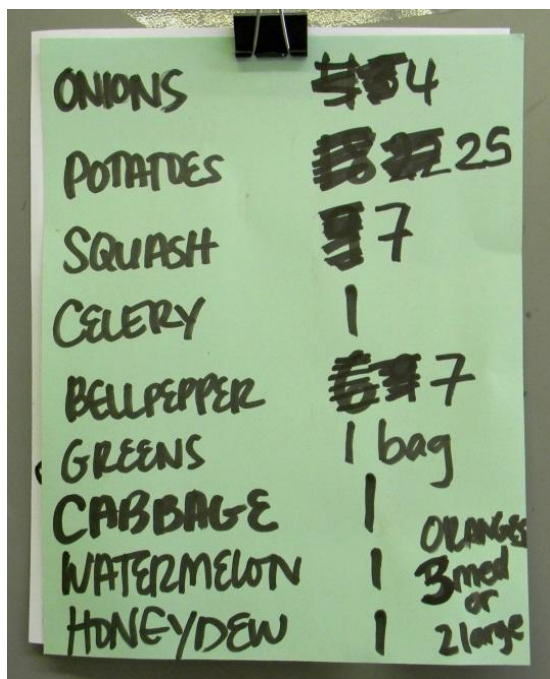 ONIONS 4
POTATOES 25
SQUASH 7
CELERY 1
BELLPEPPER 7
GREENS 1 bag
CABBAGE 1
WATERMELON 1
HONEYDEW 1
ORANGES
3 med
or
2 large